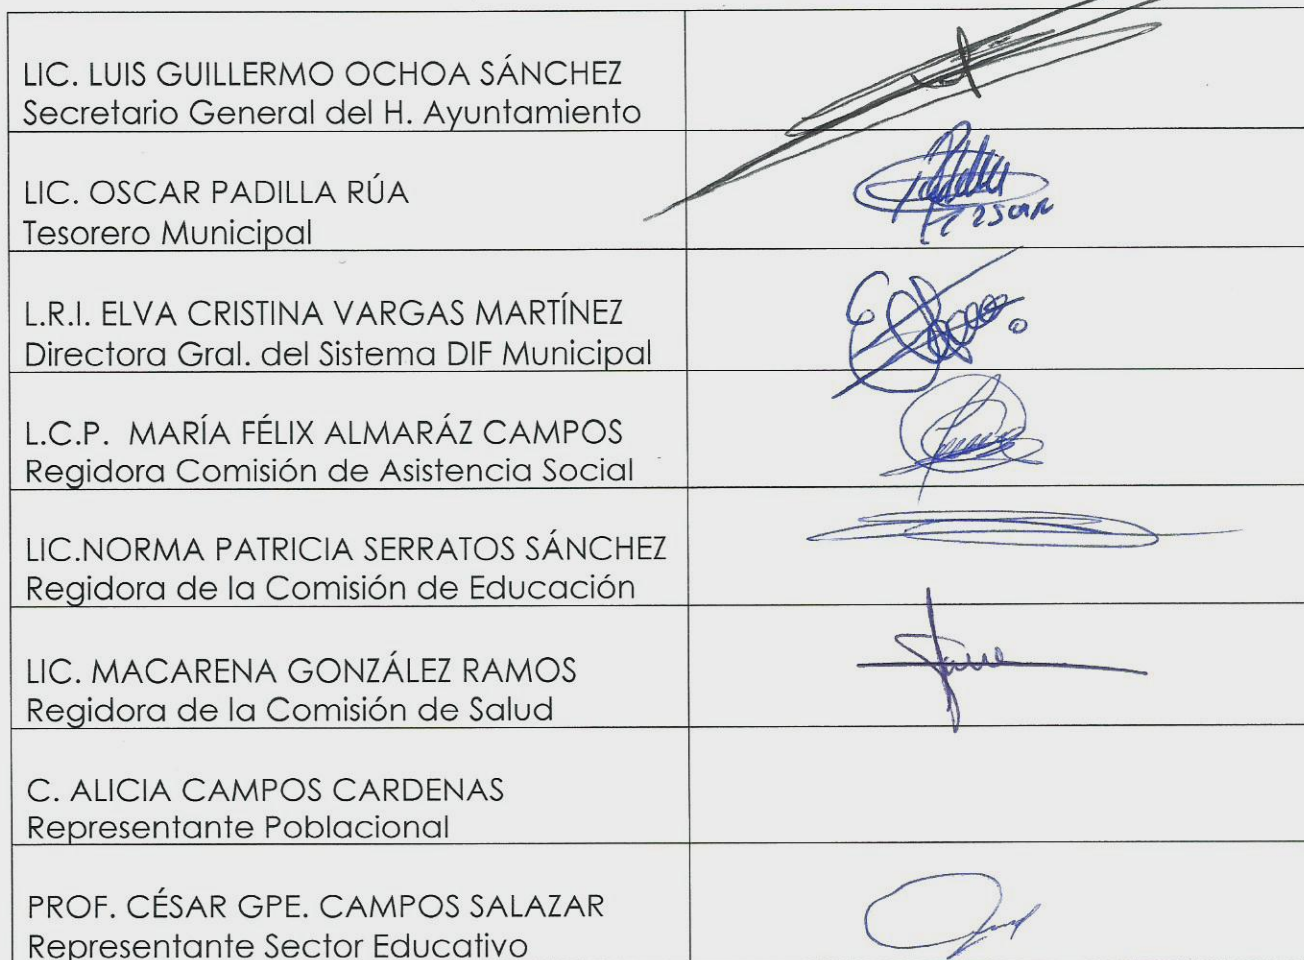 LIC. LUIS GUILLERMO OCHOA SÁNCHEZ
Secretario General del H. Ayuntamiento
LIC. OSCAR PADILLA RÚA
Tesorero Municipal
L.R.I. ELVA CRISTINA VARGAS MARTÍNEZ
Directora Gral. del Sistema DIF Municipal
L.C.P. MARÍA FÉLIX ALMARÁZ CAMPOS
Regidora Comisión de Asistencia Social
LIC.NORMA PATRICIA SERRATOS SÁNCHEZ
Regidora de la Comisión de Educación
LIC. MACARENA GONZÁLEZ RAMOS
Regidora de la Comisión de Salud
C. ALICIA CAMPOS CARDENAS
Representante Poblacional
PROF. CÉSAR GPE. CAMPOS SALAZAR
Representante Sector Educativo